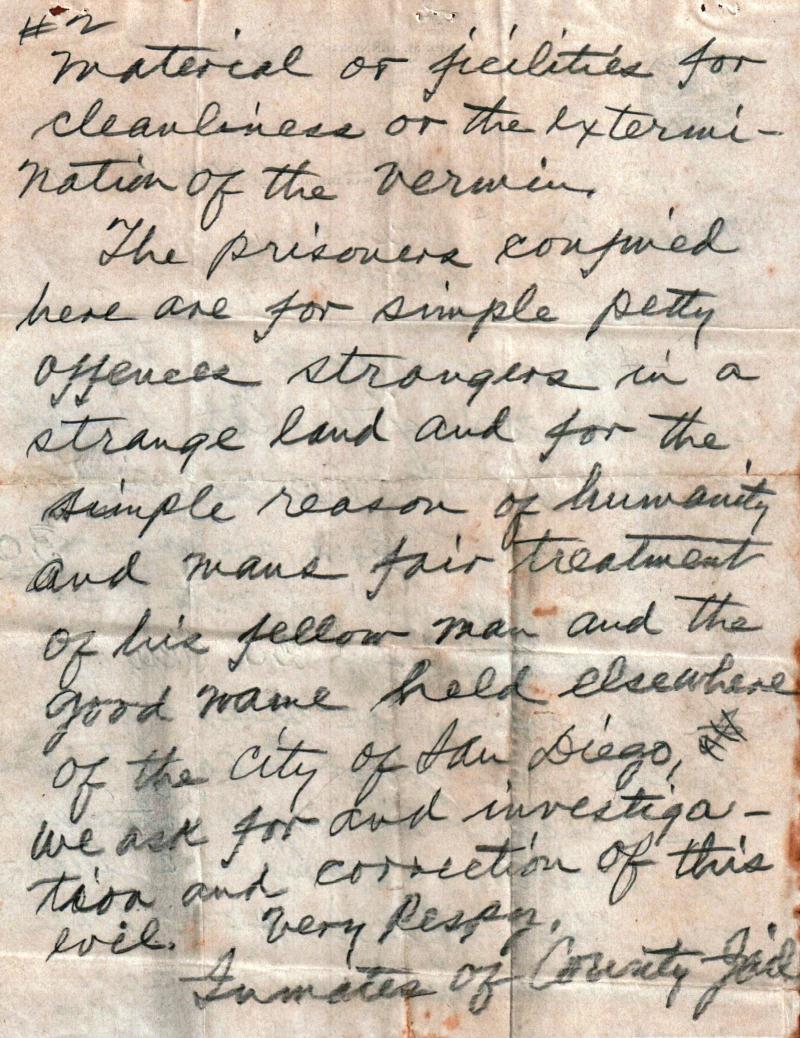 #2
Material or ficilities for
cleanliness or the extermi-
nation of the vermin.
The prisoners confined
here are for simple petty
offences strangers in a
strange land and for the
simple reason of humanity
and mans fair treatment
of his fellow man and the
good name held elsewhere
of the City of San Diego,
we ask for and investiga-
tion and correction of this
evil. Very Respy.
Inmates of County Jail